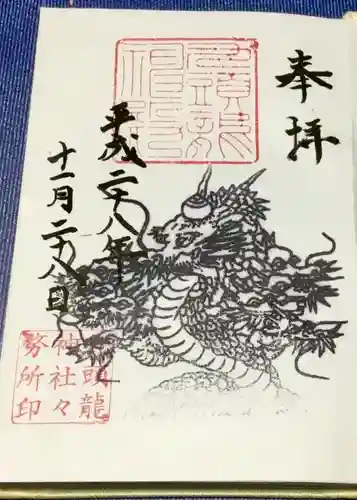 奉拝
平成二十八年
十一月二十八日
九頭龍
神社々
務所印